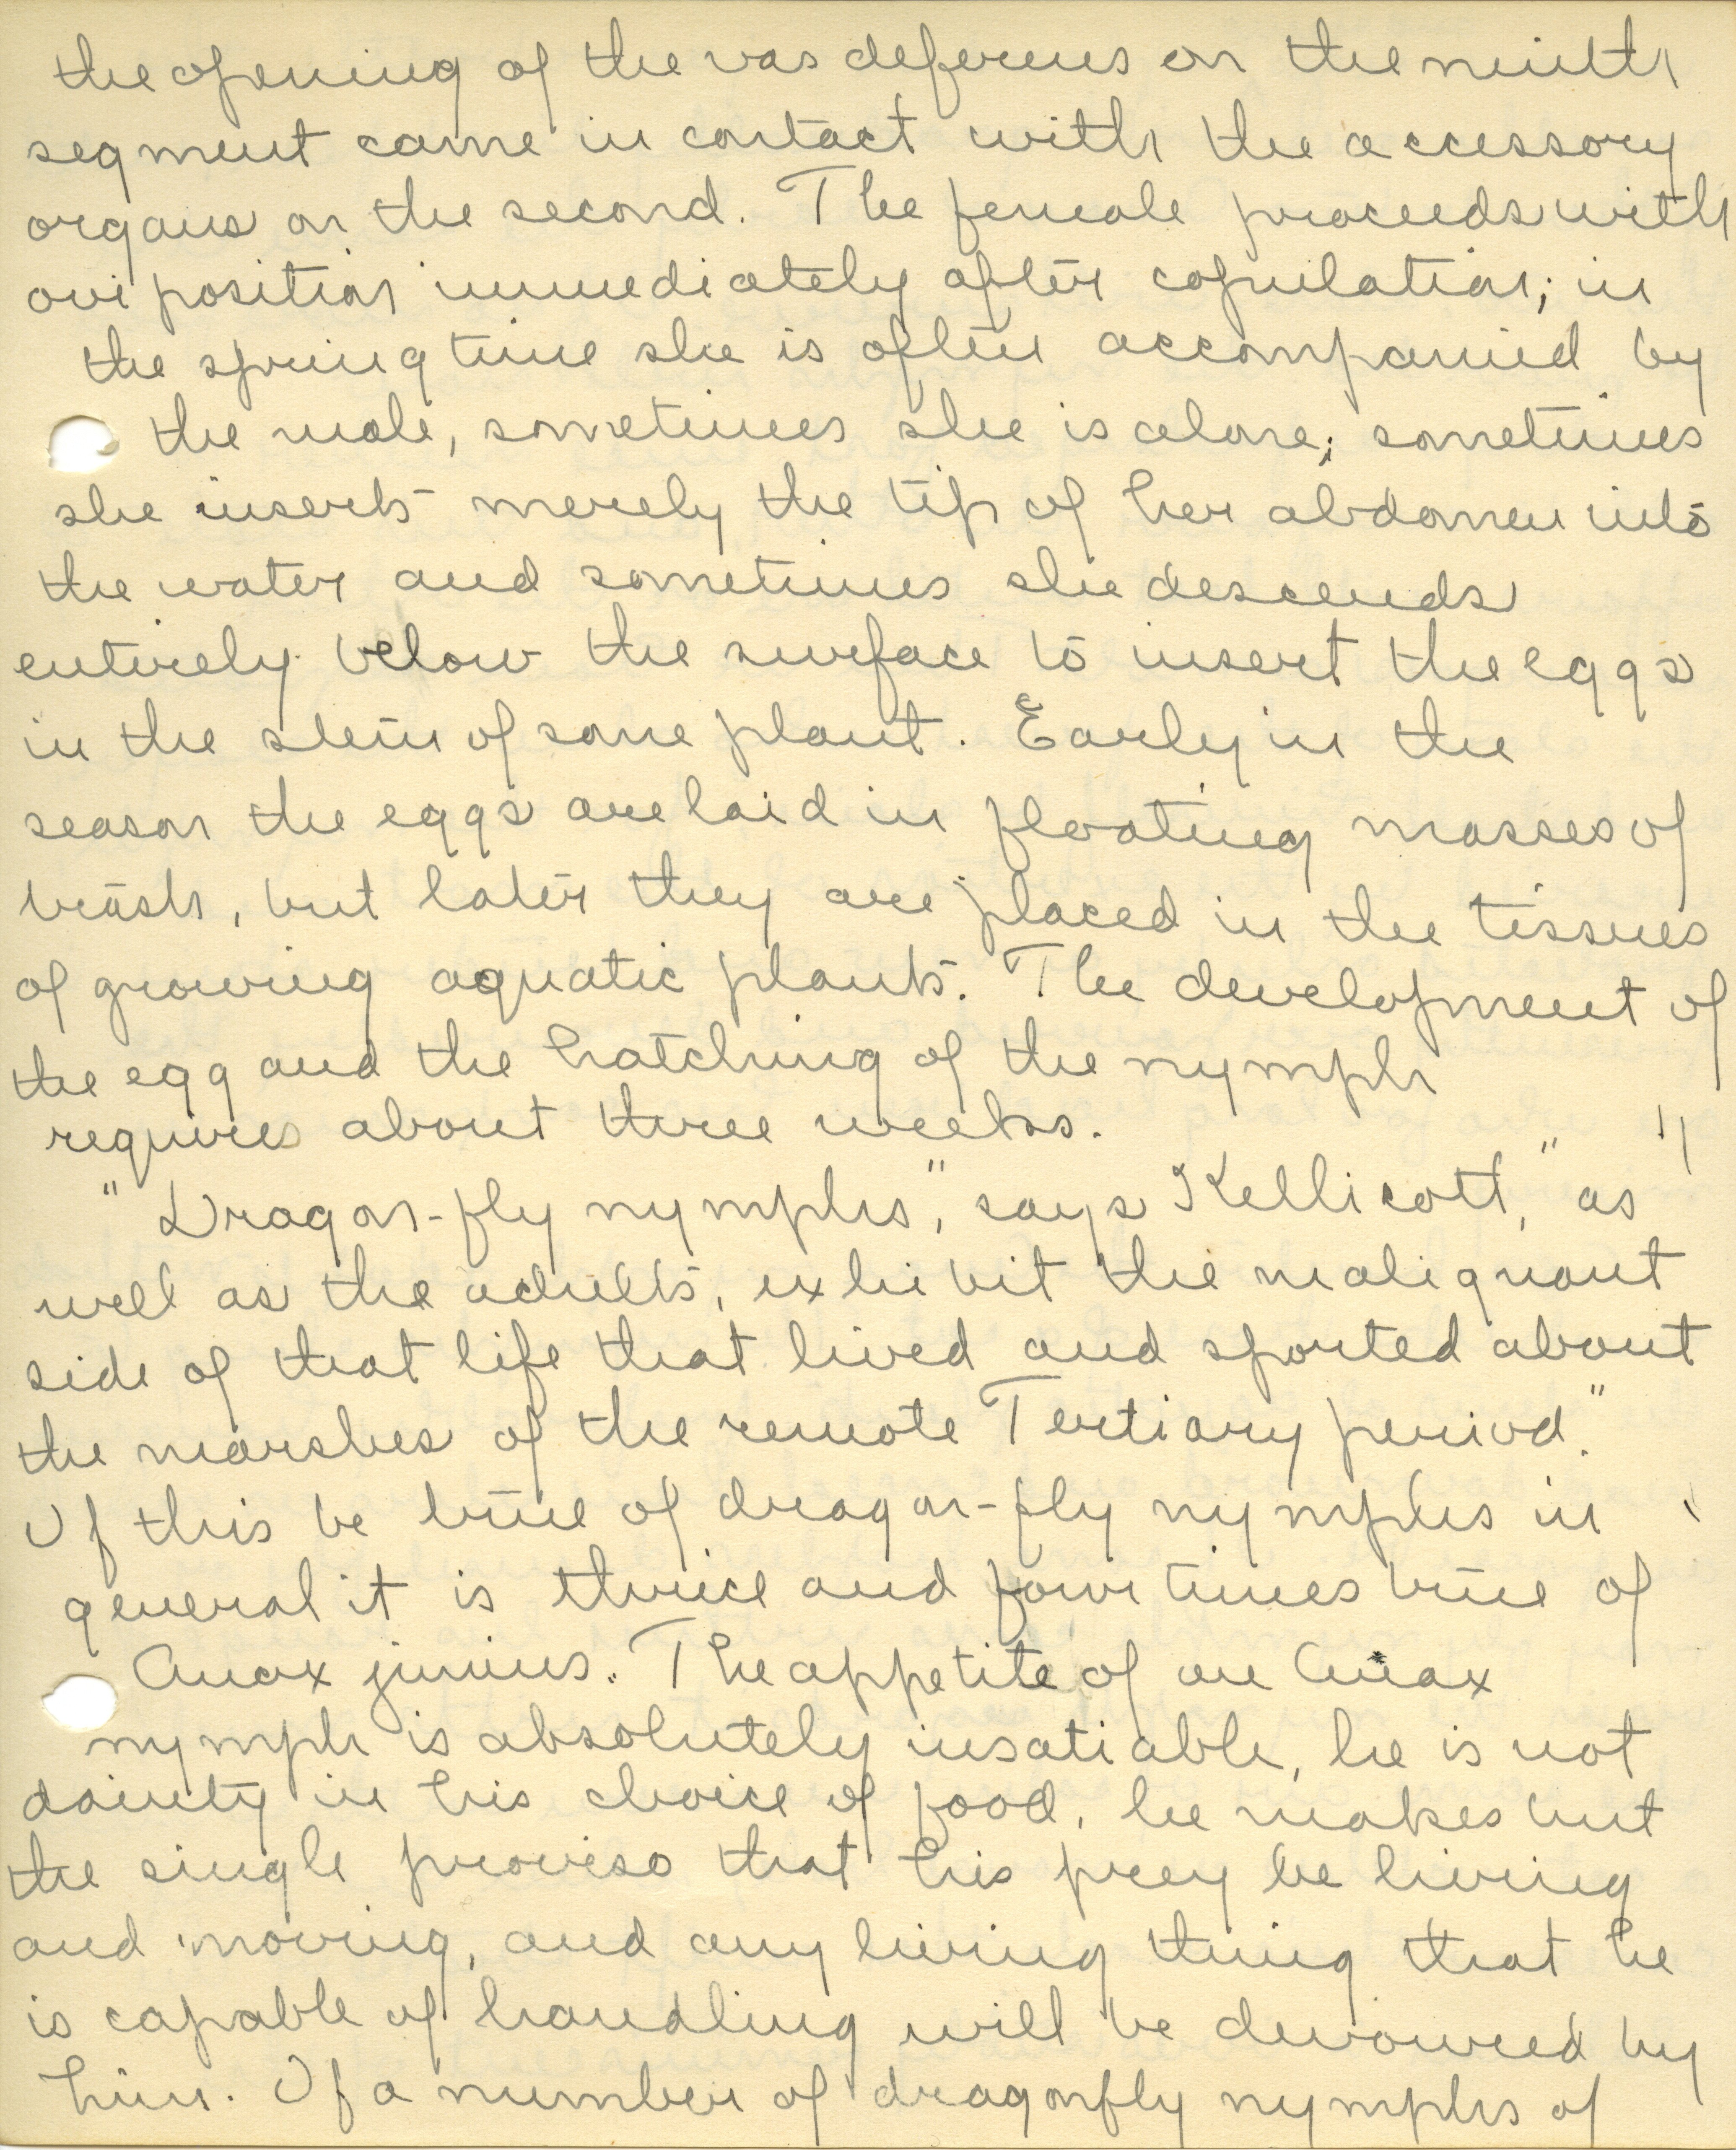 the opening of the vas deferens on the ninth
segment came in contact with the accessory
organs on the second. The female proceeds with
oviposition immediately after copulation; in
the spring time she is often accompanied by
the male, sometimes she is alone; sometimes
she inserts merely the tip of her abdomen into
the water and sometimes she descends
entirely below the surface to insert the eggs
in the stem of some plant. Early in the
season the eggs are laid in floating masses of
trash, but later they are placed in the tissues
of growing aquatic plants. The development of
the egg and the hatching of the nymph
requires about three weeks.
"Dragon-fly nymphs," says Kellicott, "as
well as the adults, exhibit the malignant
side of that life that lived and sported about
the marshes of the remote Tertiary period."
If this be true of dragon-fly nymphs in
general it is thrice and four times true of
Anax junius. The appetite of an Anax
nymph is absolutely insatiable, he is not
dainty in his choice of food, he makes but
the single proviso that his prey be living
and moving, and any living thing that he
is capable of handling will be devoured by
him. If a number of dragonfly nymphs of